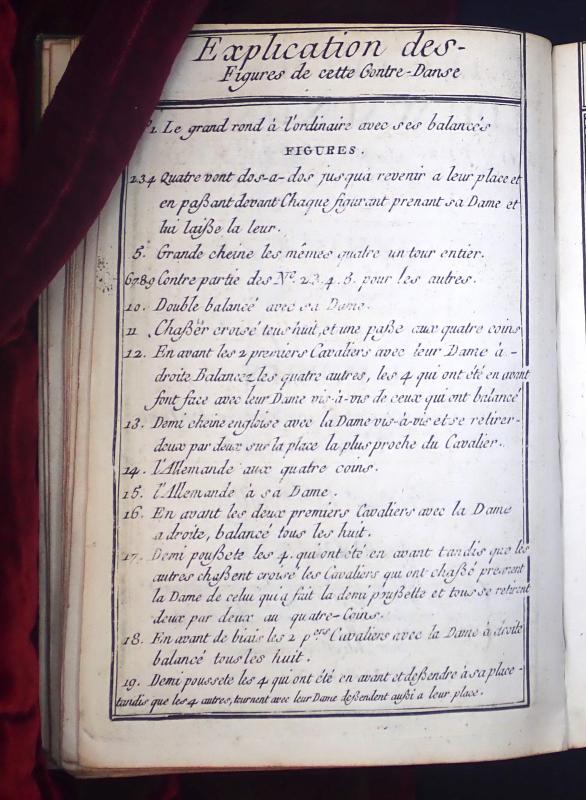 Explication des-
Figures de cette Contre-Danse
1. Le grand rond à l'ordinaire avec ses balancés
FIGURES.
2.3.4 Quatre vont dos-a-dos jusqu'à revenir a leur place et
en paßant devant Chaque figurant prenant sa Dame et
lui laiße la leur.
5. Grande cheine les mêmes quatre un tour entier.
6789 Contre partie des Nº. 2.3.4.5. pour les autres.
10. Double balancé avec sa Dame.
11 Chaßér croisé tous huit, et une paße aux quatre coins
12. En avant les 2 premiers Cavaliers avec leur Dame à-
droite Balancez les quatre autres, les 4 qui ont été en avant
font face avec leur Dame vis-à-vis de ceux qui ont balancé
13. Demi cheine engloise avec la Dame vis-à-vis et se retirer-
deux par deux sur la place la plus proche du Cavalier.
14. l'Allemande aux quatre coins.
15. l'Allemande à sa Dame.
16. En avant les deux premiers Cavaliers avec la Dame
a droite, balancé tous les huit.
17. Demi poußete les 4. qui ont été en avant tandis que les
autres chaßent croisé les Cavaliers qui ont chaßé prennent
la Dame de celui qui a fait la demi pußette et tous se retirent
deux par deux au quatre-Coins.
18. En avant de biais les 2 pers Cavaliers avec la Dame à droite
balancé tous les huit.
19. Demi poussete les 4 qui ont été en avant et deßendre à sa place-
tandis que les 4 autres, tournent avec leur Dame deßendent außi a leur place.